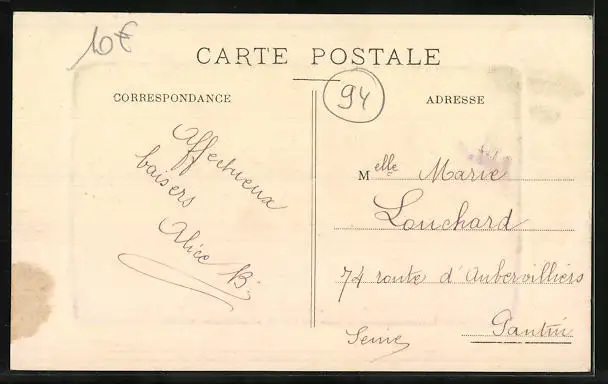 10€
CARTE POSTALE
94
CORRESPONDANCE
Affectueux
baisers
Alice B.
ADRESSE
Melle Marie
Louchard
74 route d'Aubervilliers
Pantin
Seine